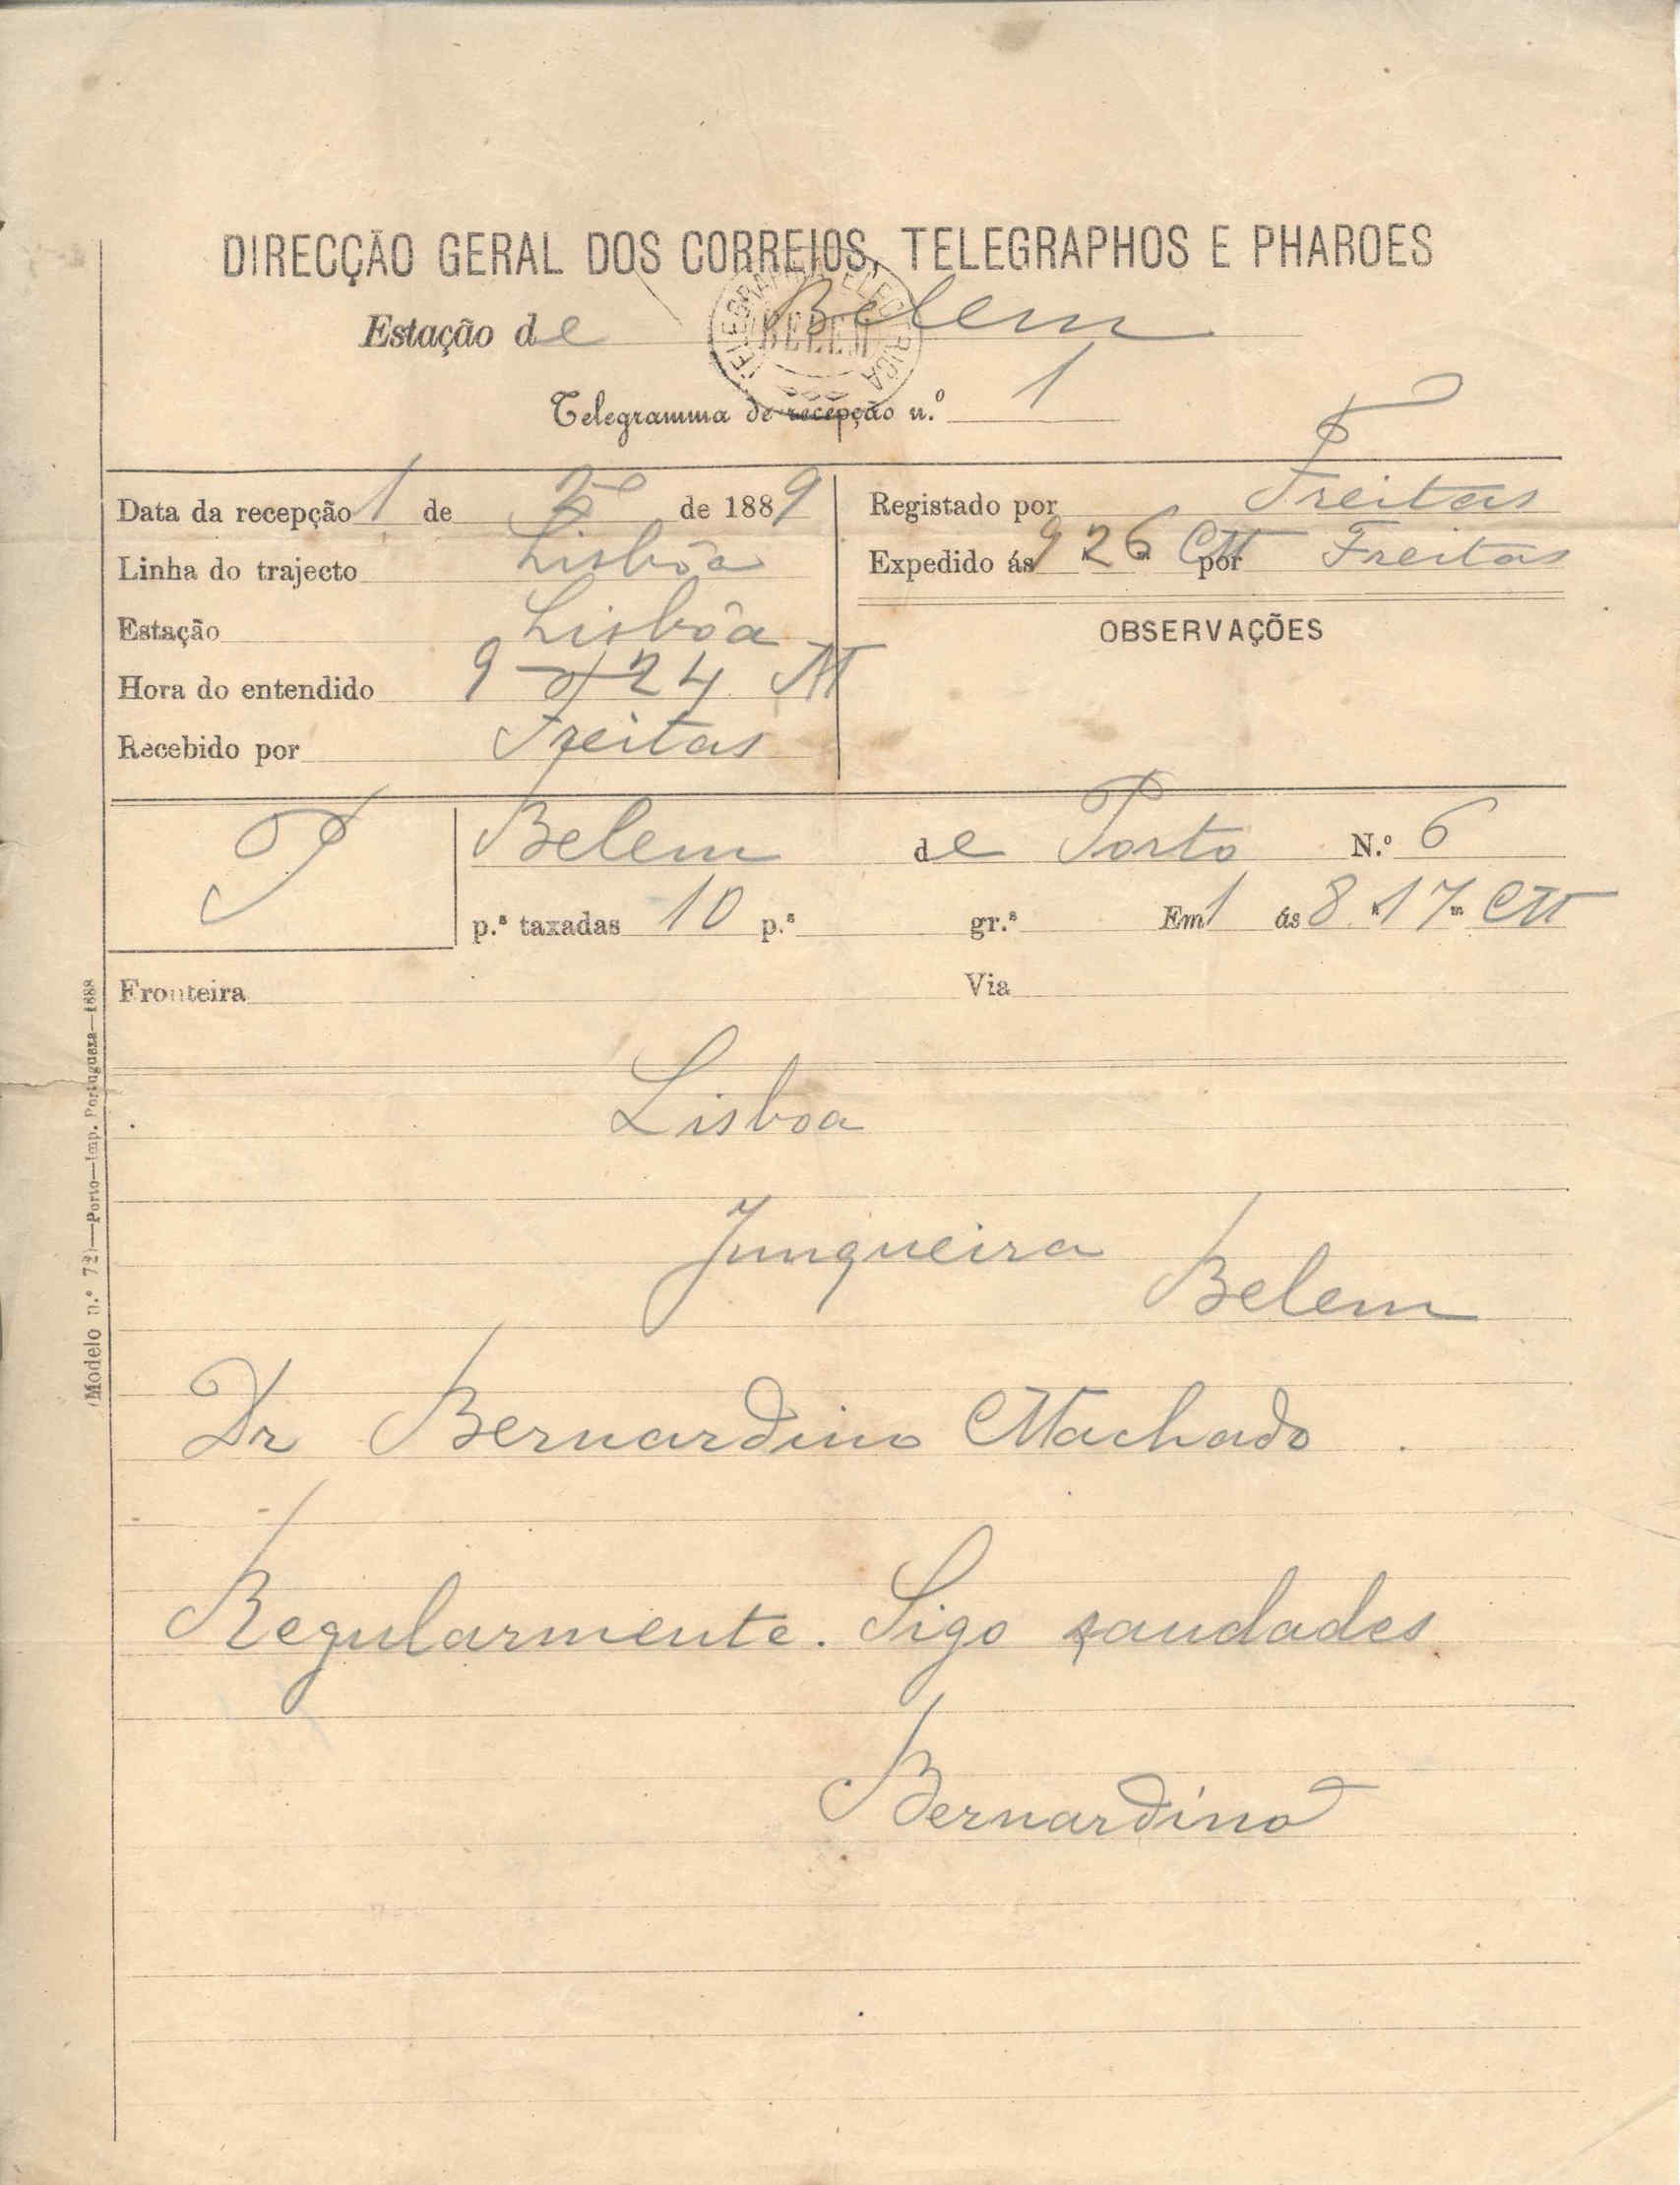 DIRECÇÃO GERAL DOS CORREIOS, TELEGRAPHOS E PHAROES
Estação de Belem
TELEGRAPHIA ELECTRICA
BELEM
Telegramma de recepção n.º 1
Data da recepção 1 de de 1889
Linha do trajecto Lisbôa
Estação Lisbôa
Hora do entendido 9 24 M
Recebido por Freitas
Registado por Freitas
Expedido ás 9 h 26 m M por Freitas
OBSERVAÇÕES
Belem de Porto N.º 6
p.ª taxadas 10 p.ª gr.ª Em 1 ás 8 h 17 m M
Fronteira Via
Lisboa
Junqueira Belem
Dr Bernardino Machado
Regularmente. Sigo saudades
Bernardino
(Modelo n.º 72)—Porto—Imp. Portugueza—1888